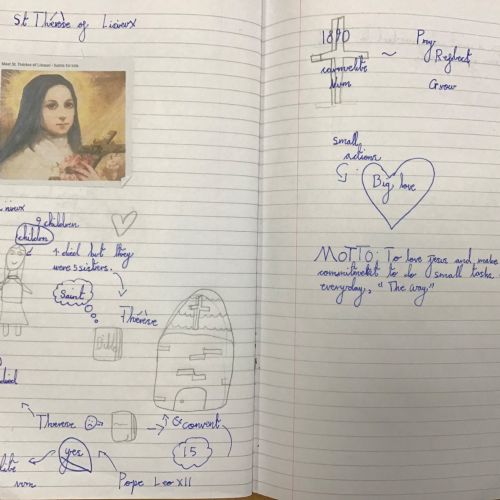 St Thérèse of Lisieux
Meet St. Thérèse of Lisieux - Saints for kids
9 children
children
4 died but they
were 5 sisters.
Saint
Thérèse
Bible
died
Therese
convent
15
yes
Pope Leo XII
1890
carmelite
num
Pray
Reflect
Grow
small
actions
Big love
MOTTO: To love Jesus and make
commitment to do small tasks
everyday, "The way."